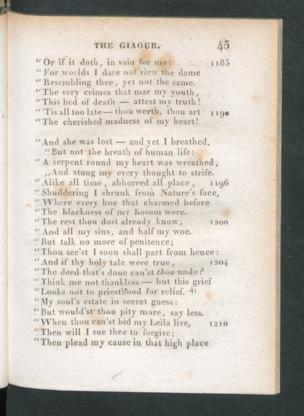 THE GIAOUR. 45
"Or if it doth, in vain for me: 1185
"For worlds I dare not view the dame
"Resembling thee, yet not the same.
"The very crimes that mar my youth,
"This bed of death — attest my truth!
"'Tis all too late — thou wert, thou art 1190
"The cherished madness of my heart!
"And she was lost — and yet I breathed,
"But not the breath of human life:
"A serpent round my heart was wreathed,
"And stung my every thought to strife.
"Alike all time, abhorred all place, 1196
"Shuddering I shrunk from Nature's face,
"Where every hue that charmed before
"The blackness of my bosom wore.
"The rest thou dost already know, 1200
"And all my sins, and half my woe.
"But talk no more of penitence;
"Thou see'st I soon shall part from hence:
"And if thy holy tale were true, 1204
"The deed that's done can'st thou undo?
"Think me not thankless — but this grief
"Looks not to priesthood for relief.
"My soul's estate in secret guess:
"But would'st thou pity more, say less.
"When thou can'st bid my Leila live, 1210
"Then will I sue thee to forgive;
"Then plead my cause in that high place